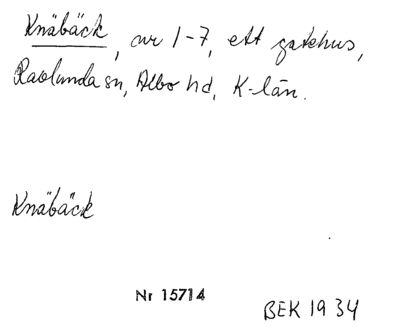 Knäbäck, nr 1-7, ett gatehus,
Ravlunda sn, Albo hd, K-län.
Knäbäck
Nr 15714
BEK 1934